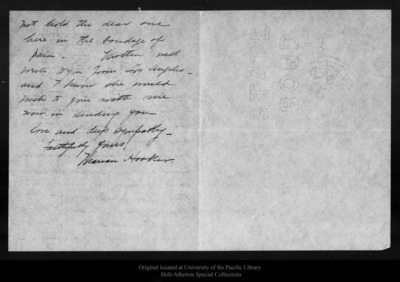 not hold the dear one
here in the bondage of
pain. Mother will
write you from Los Angeles -
and I know she would
wish to join with me
now in sending you
love and deep sympathy -
Faithfully yours,
Marian Hooker
Original located at University of the Pacific Library
Holt-Atherton Special Collections